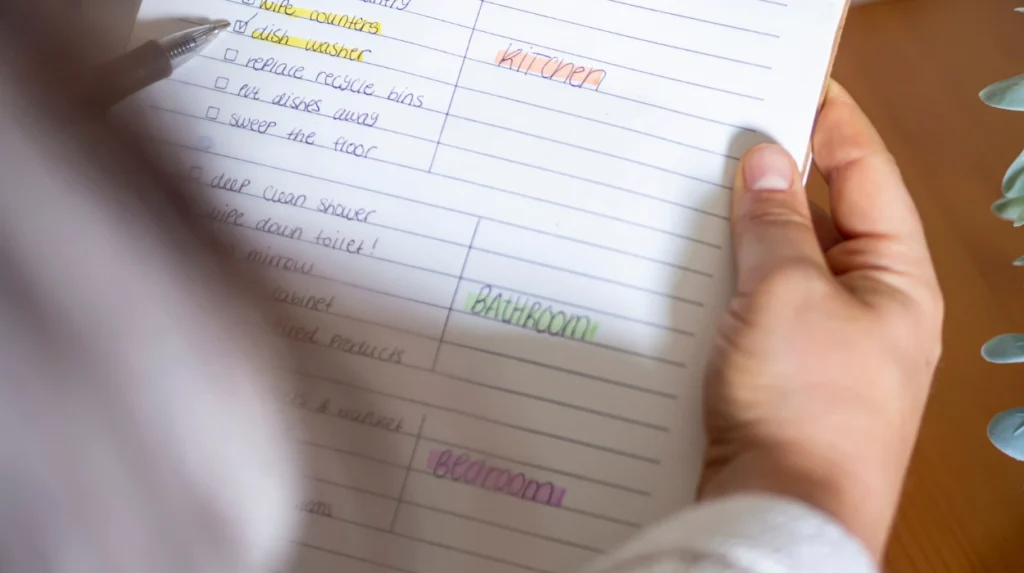 wipe counters
dish washer
replace recycle bins
put dishes away
sweep the floor
KITCHEN
deep clean shower
wipe down toilet!
mirrow
cabinet
products
BATHROOM
&
Bedroom